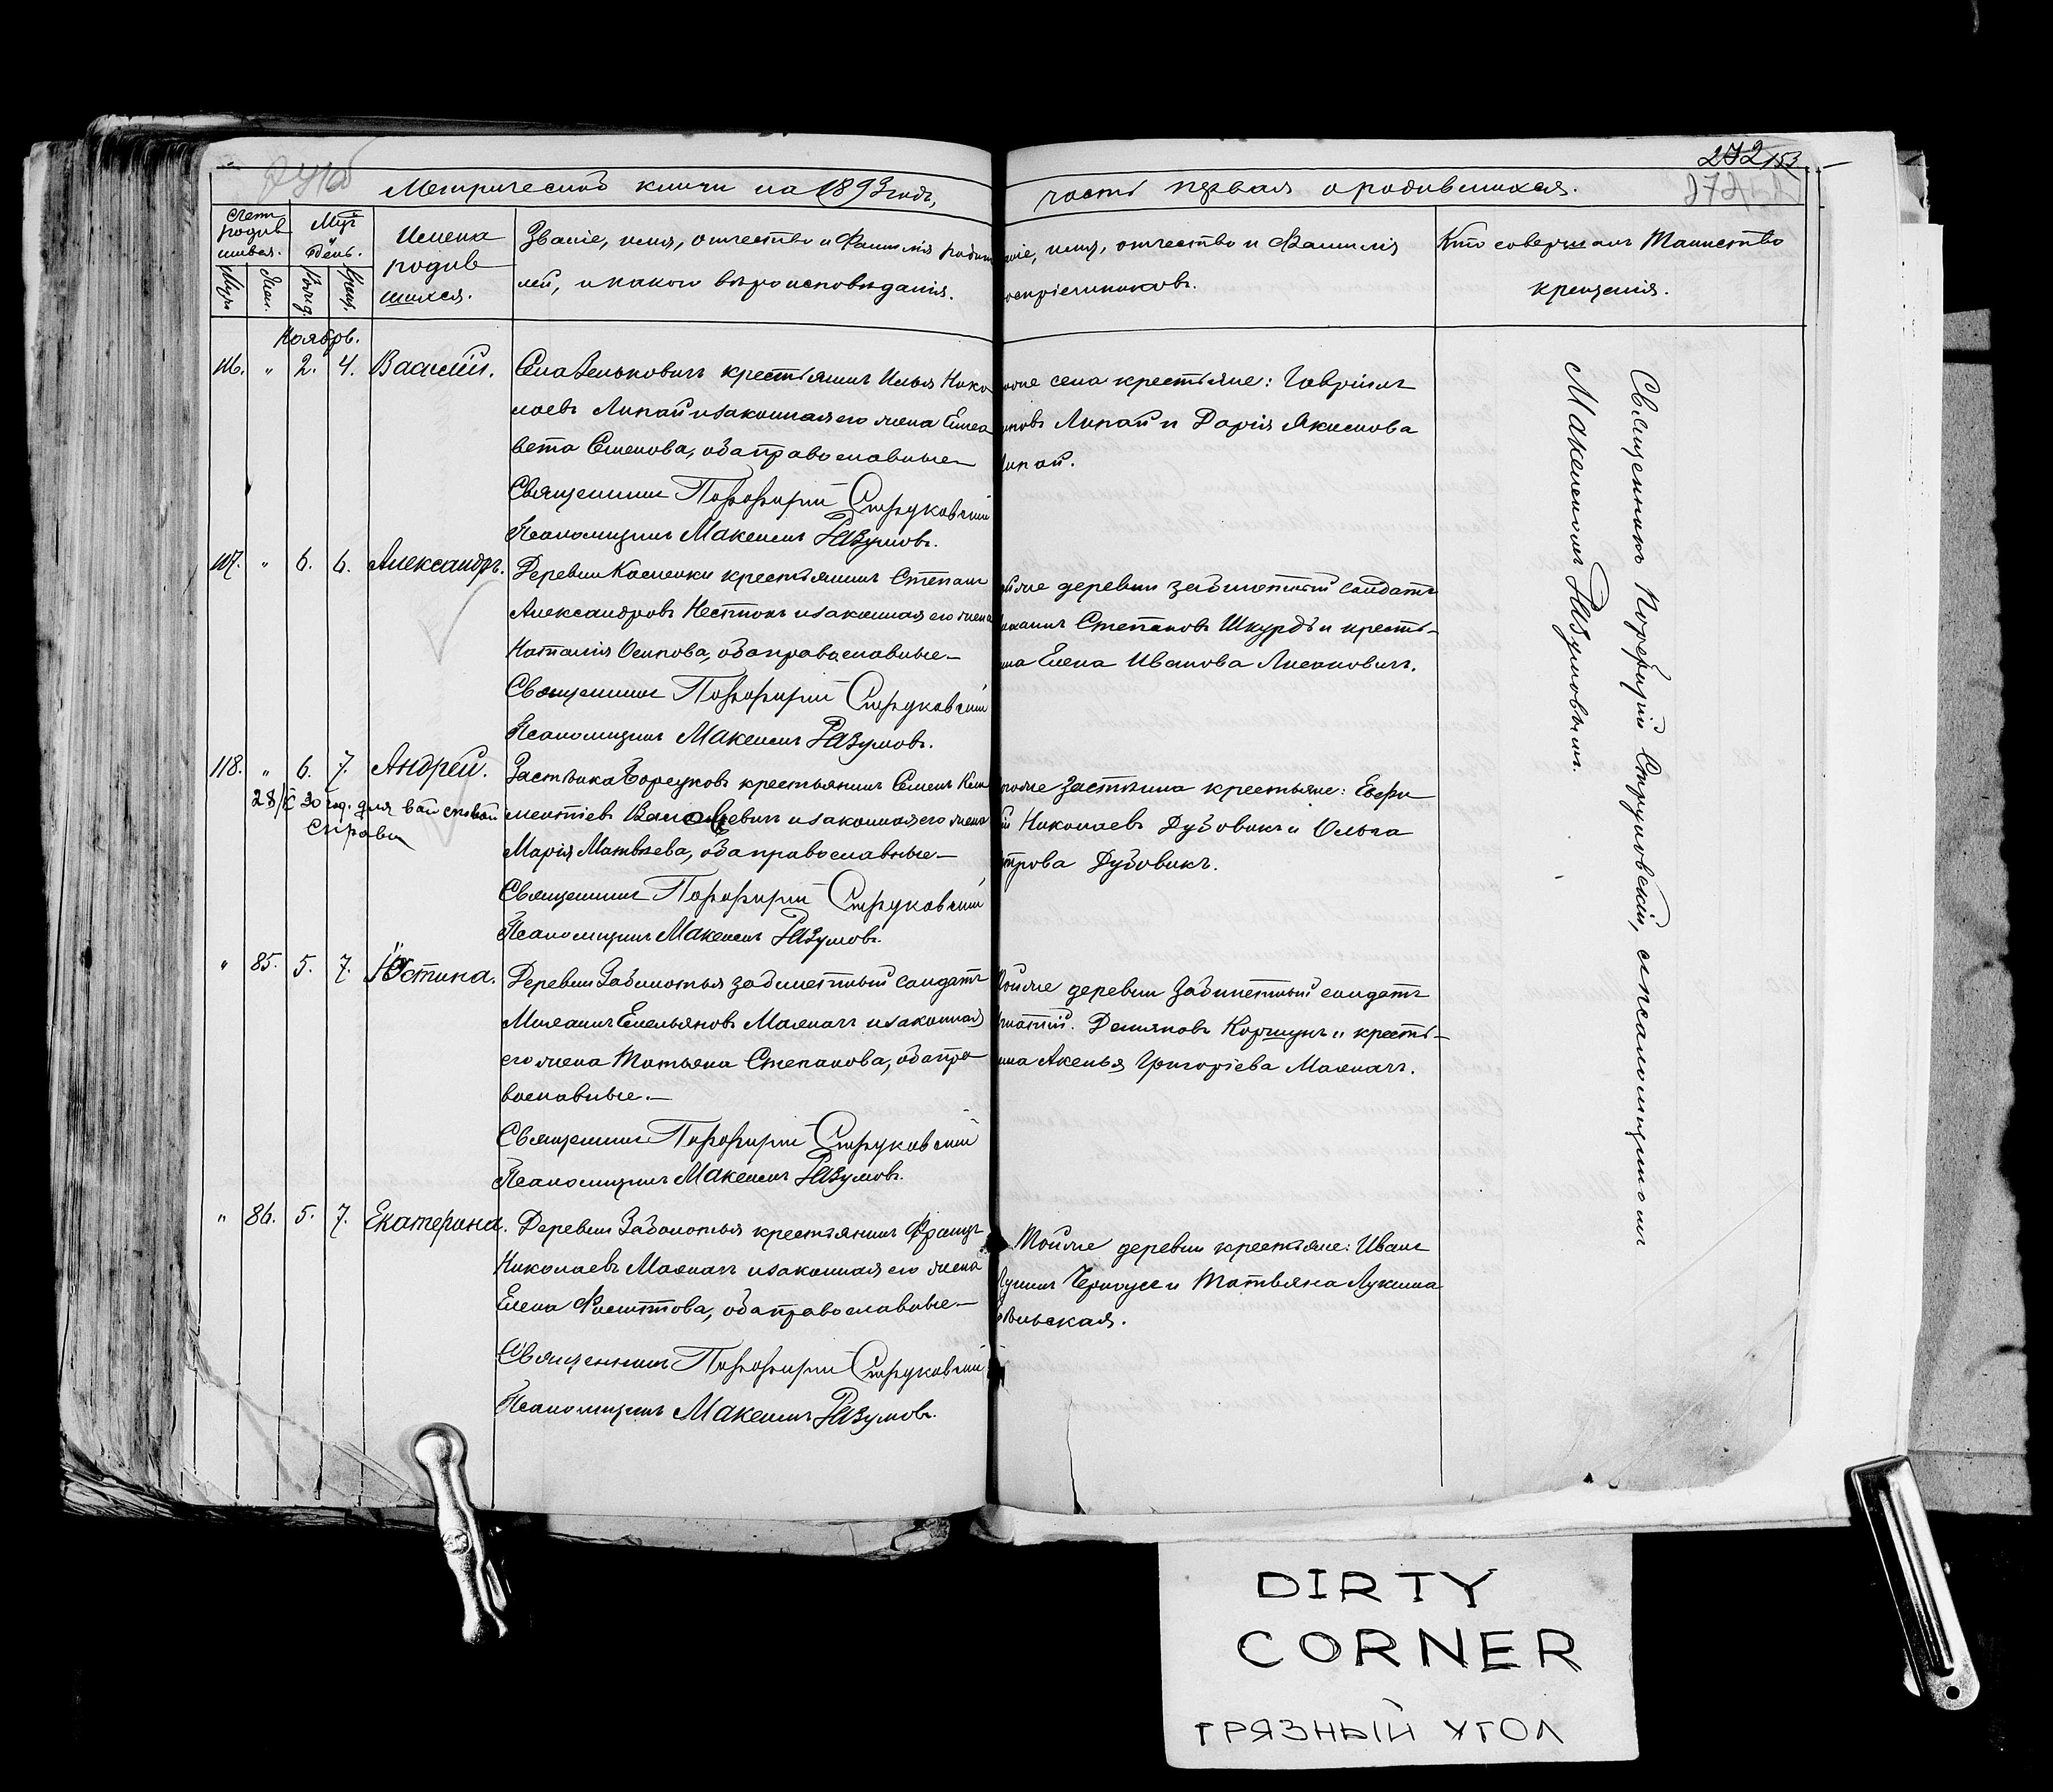 272 153
Метрической книги на 1893 годъ,
часть первая о родившихся.
Счетъ родившихся.
Муж. Жен.
День.
Рожд. Крещ.
Имена родившихся.
Званіе, имя, отчество и фамилія родит
лей, и какого вѣроисповѣданія.
аніе, имя, отчество и фамилія
оспріемниковъ.
Кто совершалъ Таинство
крещенія.
Ноябрь.
116. " 2. 4. Василій.
Села Вельковичъ крестьянинъ Илья Нико
лаевъ Липай и законная его жена Елиса
вета Семенова, оба православные
Священникъ Порфирій Струковскій
Псаломщикъ Максимъ Разумовъ.
села крестьяне: Гавріилъ
Липай и Дарія Якимова
ипай.
117. " 6. 6. Александръ.
Деревни крестьянинъ Степанъ
Александровъ Нестюкъ и законная его жена
Наталія Осипова, оба православные
Священникъ Порфирій Струковскій
Псаломщикъ Максимъ Разумовъ.
деревни забилетный солдатъ
Степановъ Шкурдь и кресть-
Елена Иванова Лисановичъ.
118. " 6. 7. Андрей.
28/X 30 год. для справки
Застѣнка Борецковъ крестьянинъ Семенъ Кли
ментіевъ и законная его жена
Марія Матвѣева, оба православные
Священникъ Порфирій Струковскій
Псаломщикъ Максимъ Разумовъ.
застѣнка крестьяне: Евфи
й Николаевъ Дубовикъ и Ольга
трова Дубовикъ.
" 85. 5. 7. Юстина.
Деревни Заболотья забилетный солдатъ
Михаилъ Емельяновъ и законная
его жена Татьяна Степанова, оба пра
вославные.
Священникъ Порфирій Струковскій
Псаломщикъ Максимъ Разумовъ.
Тойже деревни забилетный солдатъ
Демяновъ Коршунъ и кресть-
Аксенья Григоріева
" 86. 5. 7. Екатерина.
Деревни Заболотья крестьянинъ Францъ
Николаевъ и законная его жена
Елена оба православные
Священникъ Порфирій Струковскій
Псаломщикъ Максимъ Разумовъ.
Тойже деревни крестьяне: Иванъ
Черноусъ и Татьяна Лукина
Священникъ Порфирій Струковскій, съ псаломщикомъ
Максимомъ Разумовымъ.
DIRTY
CORNER
ГРЯЗНЫЙ УГОЛ